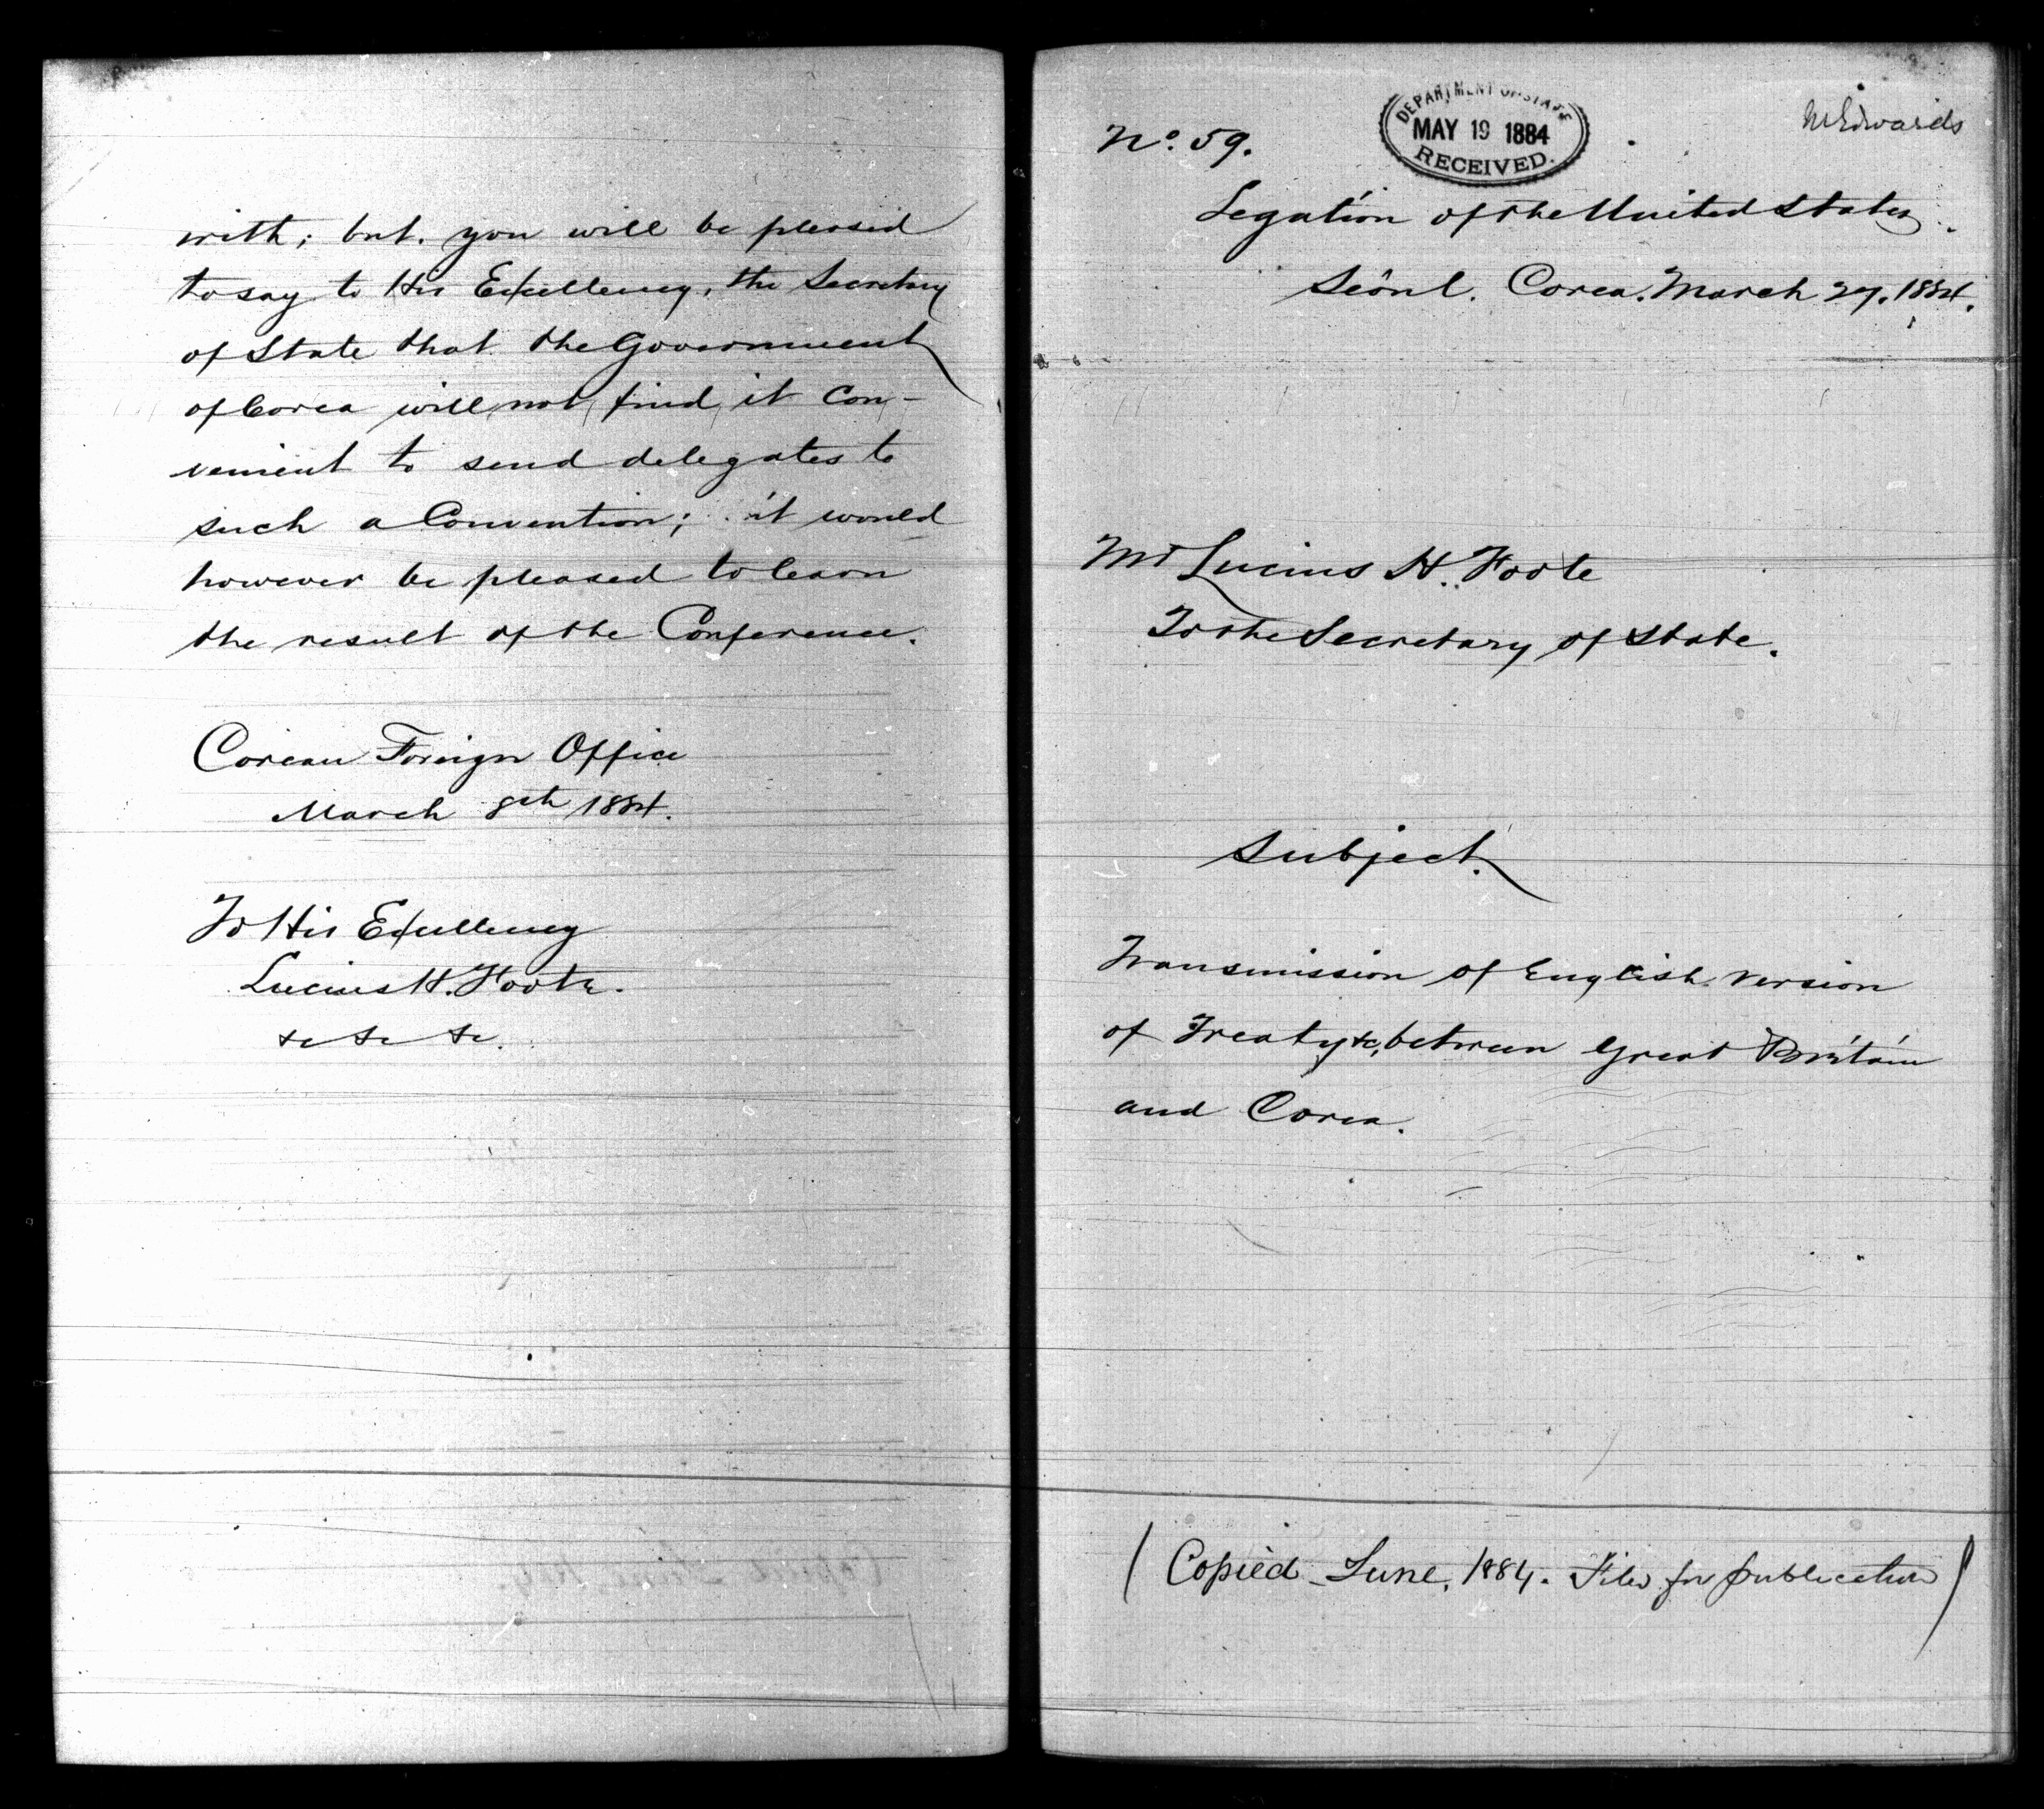 with; but. you will be pleased
to say to His Excellency, the Secretary
of State that the Government
of Corea will not find it con-
venient to send delegates to
such a Convention; it would
however be pleased to learn
the result of the Conference.
Corean Foreign Office
March 8th 1884.
To His Excellency
Lucius H. Foote.
&c &c &c.
No. 59.
DEPARTMENT OF STATE
MAY 19 1884
RECEIVED.
Mr Edwards
Legation of the United States.
Seôul. Corea. March 27. 1884.
Mr Lucius H. Foote
To the Secretary of State.
Subject.
Transmission of English version
of Treaty &c, between Great Britain
and Corea.
(Copied June, 1884. Filed for publication)